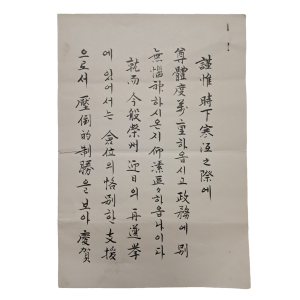 謹惟時下寒冱之際에
尊體度萬重하옵시고政務에別
無惱神하시온지仰溸區々하옵나이다
就而今般榮州迎日의再選擧
에있어서는僉位의恪別한支援
으로서壓倒的制勝을보아慶賀